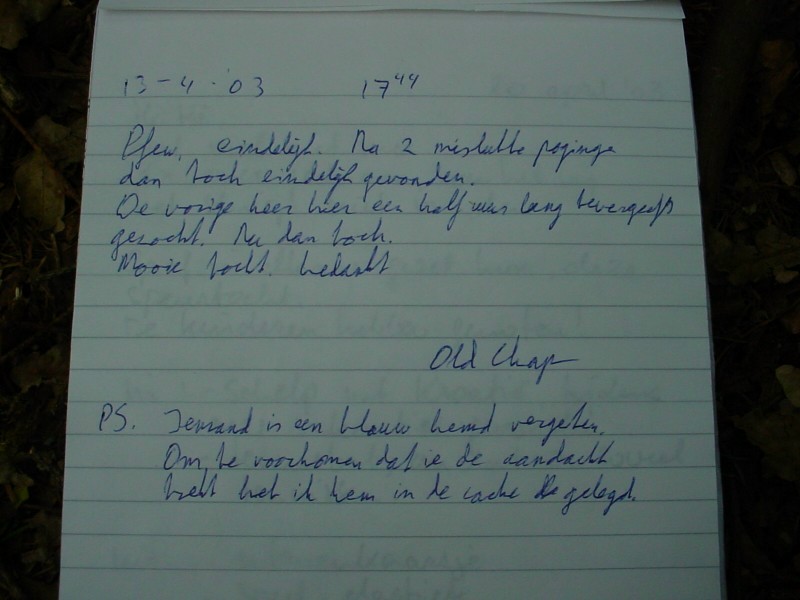 13-4-'03 17⁴⁴
Pfew, eindelijk. Na 2 mislukte poginge
dan toch eindelijk gevonden.
De vorige keer hier een half uur lang tevergeefs
gezocht. Nu dan toch.
Mooie tocht. bedankt
Old Chap
PS. Iemand is een blauw hemd vergeten.
Om te voorkomen dat ie de aandacht
trekt heb ik hem in de cache gelegd.